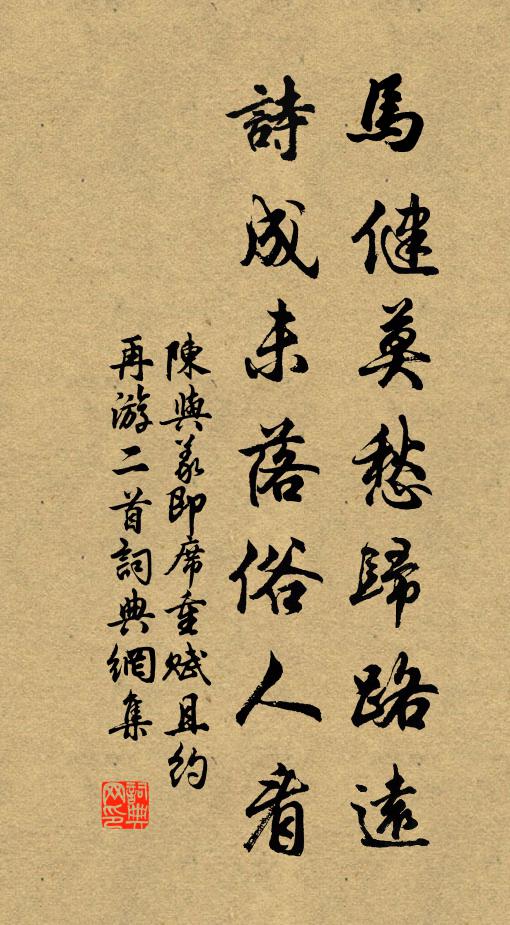 馬健莫愁歸路遠
詩成未落俗人看
陳與義即席重賦且約
再游二首詞典網集
詞典
网印